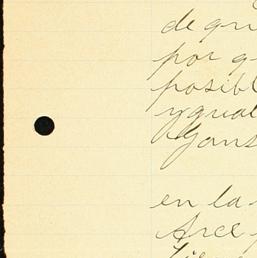 de qu
por q
posibl
ygual
Gons
en la
Arce